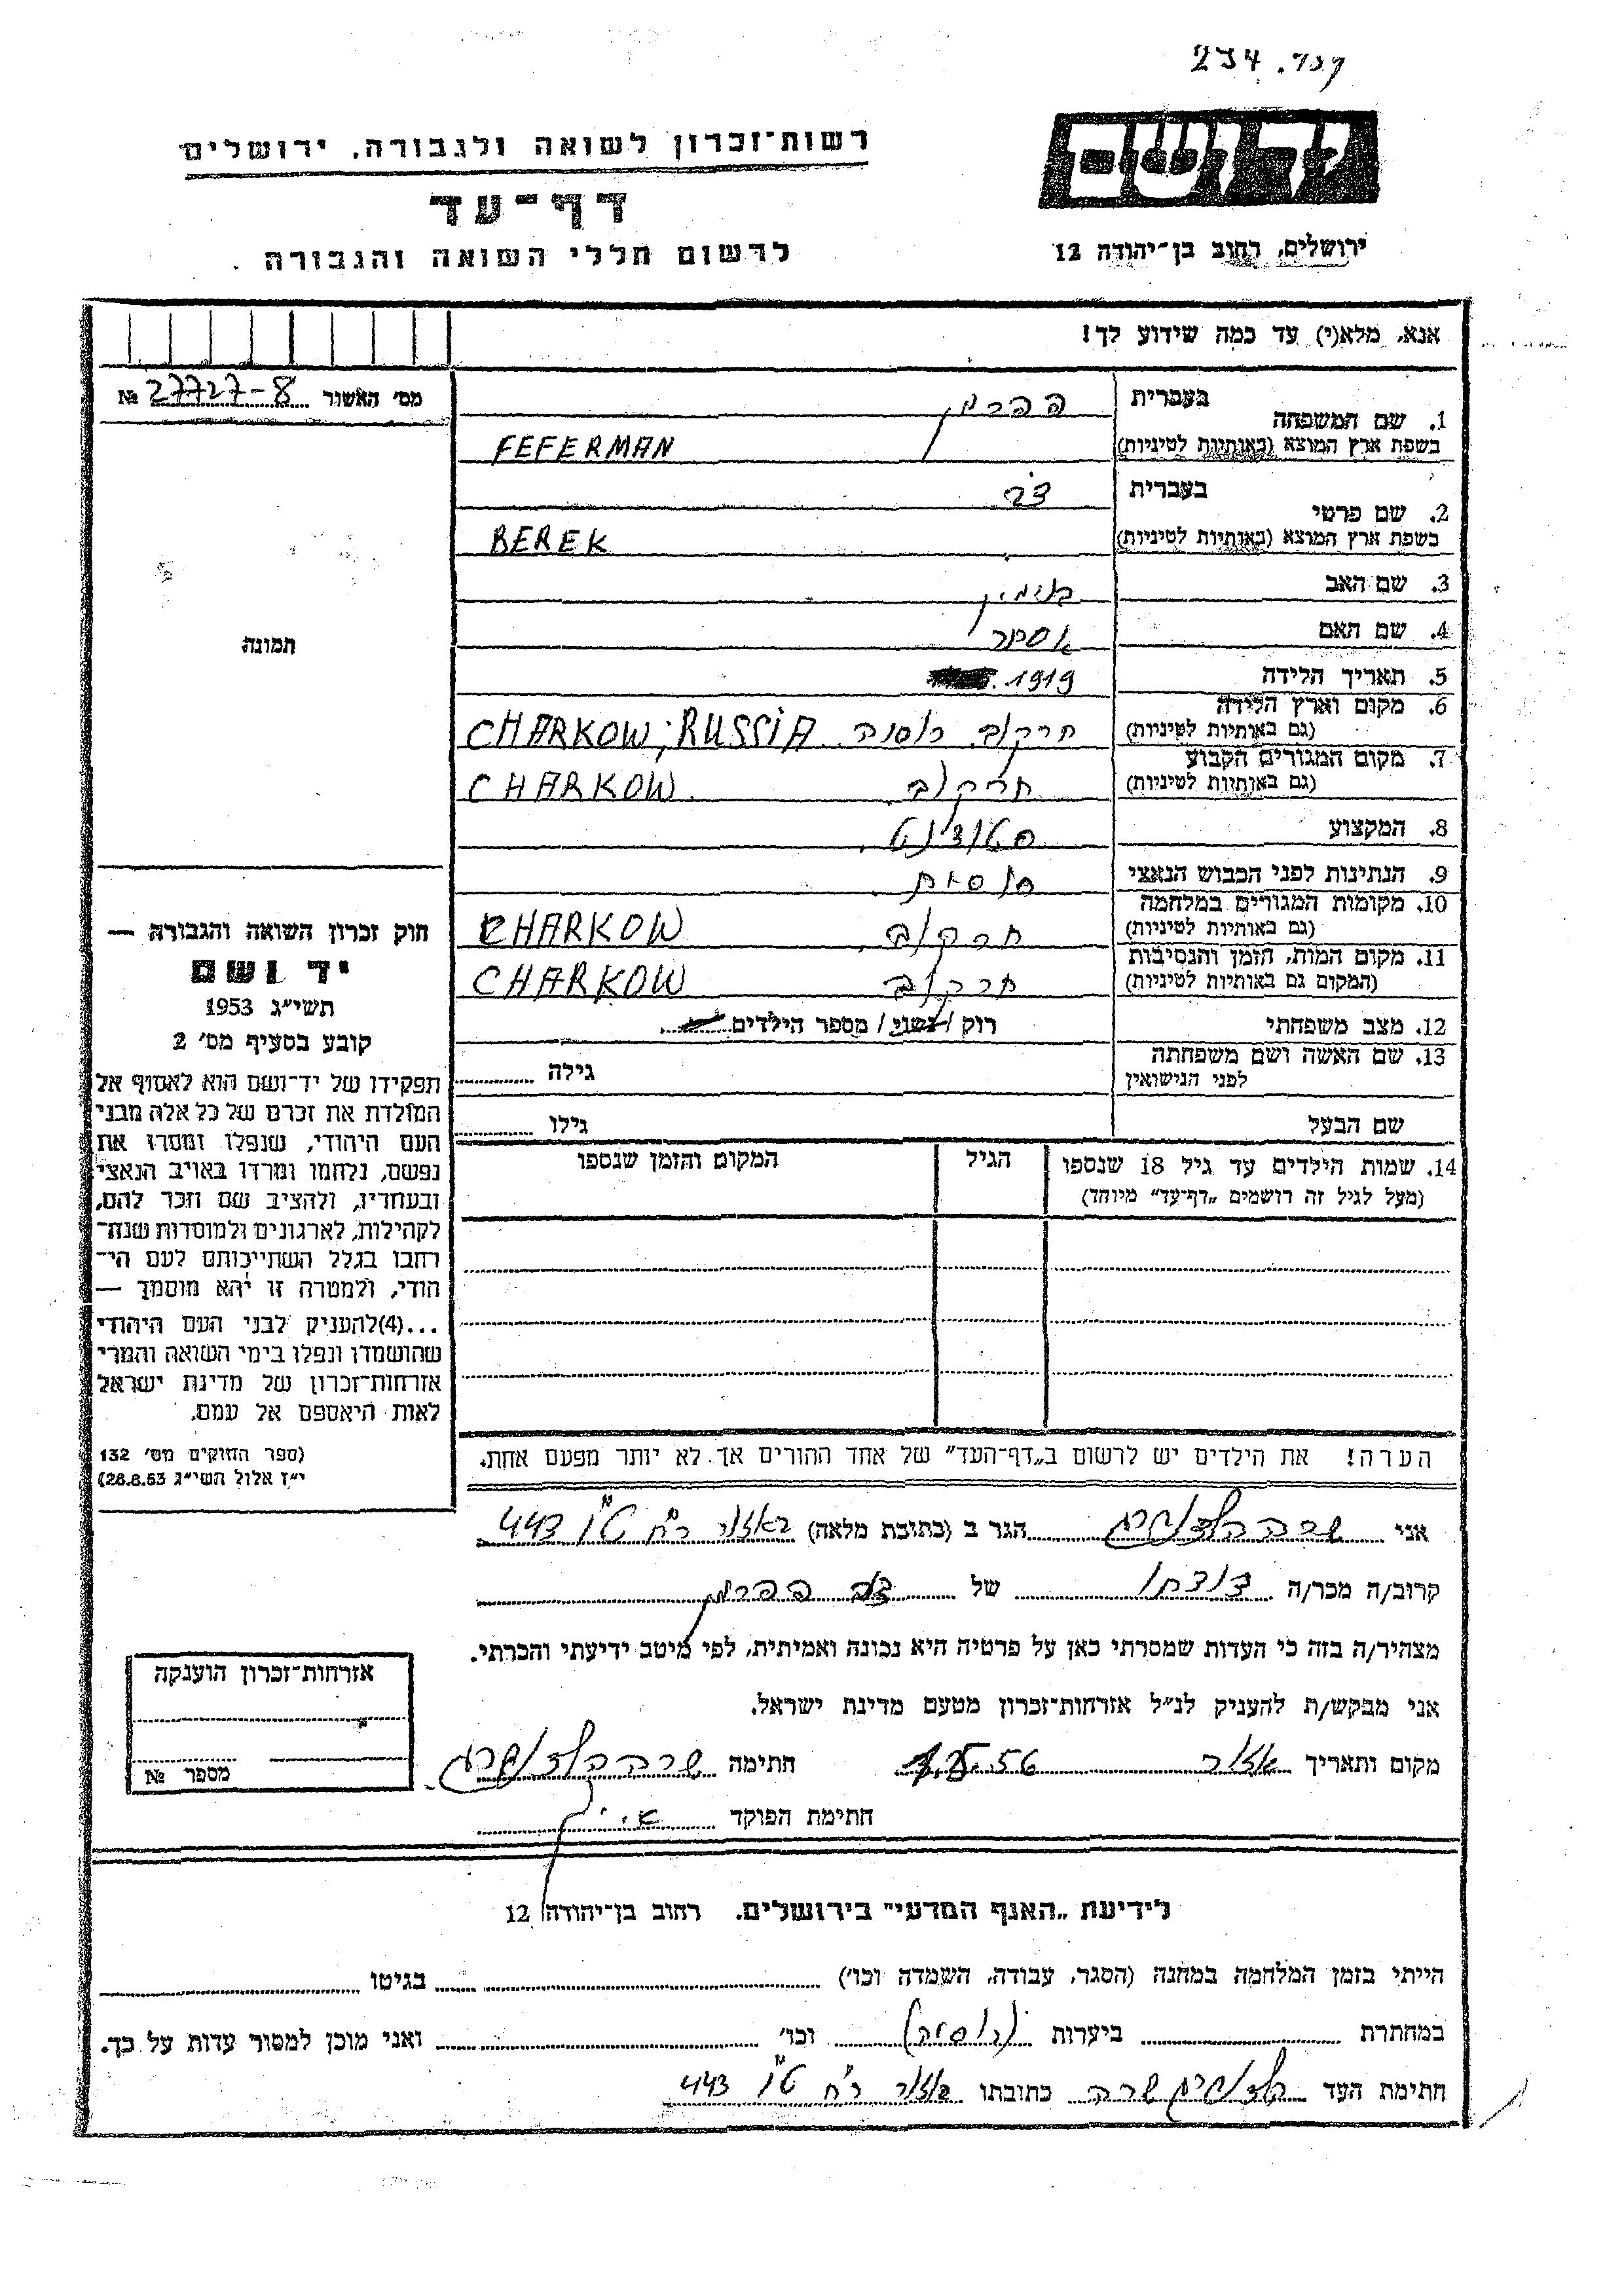 234.
רשות־זכרון לשואה ולגבורה, ירושלים
דף־עד
לרשום חללי השואה והגבורה
יד ושם
ירושלים, רחוב בן־יהודה 12
אנא, מלא(י) עד כמה שידוע לך!
מס׳ האשור 27727-8 №
1. שם המשפחה
בעברית פפרמן
בשפת ארץ המוצא (באותיות לטיניות) FEFERMAN
2. שם פרטי
בעברית
בשפת ארץ המוצא (באותיות לטיניות) BEREK
3. שם האב בנימין
4. שם האם אסתר
5. תאריך הלידה 1919
6. מקום וארץ הלידה
(גם באותיות לטיניות) חרקוב רוסיה CHARKOW, RUSSIA
7. מקום המגורים הקבוע
(גם באותיות לטיניות) חרקוב CHARKOW
8. המקצוע סטודנט
9. הנתינות לפני הכבוש הנאצי רוסית
10. מקומות המגורים במלחמה
(גם באותיות לטיניות) חרקוב CHARKOW
11. מקום המות, הזמן והנסיבות
(המקום גם באותיות לטיניות) חרקוב CHARKOW
12. מצב משפחתי רוק / נשוי / מספר הילדים
13. שם האשה ושם משפחתה
לפני הנישואין
גילה
שם הבעל גילו
14. שמות הילדים עד גיל 18 שנספו
(מעל לגיל זה רושמים „דף־עד״ מיוחד)
הגיל
המקום והזמן שנספו
הערה! את הילדים יש לרשום ב„דף־העד״ של אחד ההורים אך לא יותר מפעם אחת.
תמונה
חוק זכרון השואה והגבורה —
יד ושם
תשי״ג 1953
קובע בסעיף מס׳ 2
תפקידו של יד־ושם הוא לאסוף אל
המולדת את זכרם של כל אלה מבני
העם היהודי, שנפלו ומסרו את
נפשם, נלחמו ומרדו באויב הנאצי
ובעוזריו, ולהציב שם וזכר להם,
לקהילות, לארגונים ולמוסדות שנח־
רחבו בגלל השתייכותם לעם הי־
הודי, ולמטרה זו יהא מוסמך —
...(4)להעניק לבני העם היהודי
שהושמדו ונפלו בימי השואה והמרי
אזרחות־זכרון של מדינת ישראל
לאות היאספם אל עמם.
(ספר החוקים מס׳ 132
י״ז אלול תשי״ג 28.8.53)
אני שרה הגר ב (כתובת מלאה) באזור 443
קרוב/ה מכר/ה דודתו של פפרמן
מצהיר/ה בזה כי העדות שמסרתי כאן על פרטיה היא נכונה ואמיתית, לפי מיטב ידיעתי והכרתי.
אני מבקש/ת להעניק לנ״ל אזרחות־זכרון מטעם מדינת ישראל.
מקום ותאריך אזור 56 חתימה שרה
חתימת הפוקד
אזרחות־זכרון הוענקה
מספר №
לידיעת „האגף המדעי״ בירושלים. רחוב בן־יהודה 12
הייתי בזמן המלחמה במחנה (הסגר, עבודה, השמדה וכו׳) בגיטו
במחתרת ביערות (רוסיה) וכו׳ ואני מוכן למסור עדות על כך.
חתימת העד שרה כתובתו אזור 443